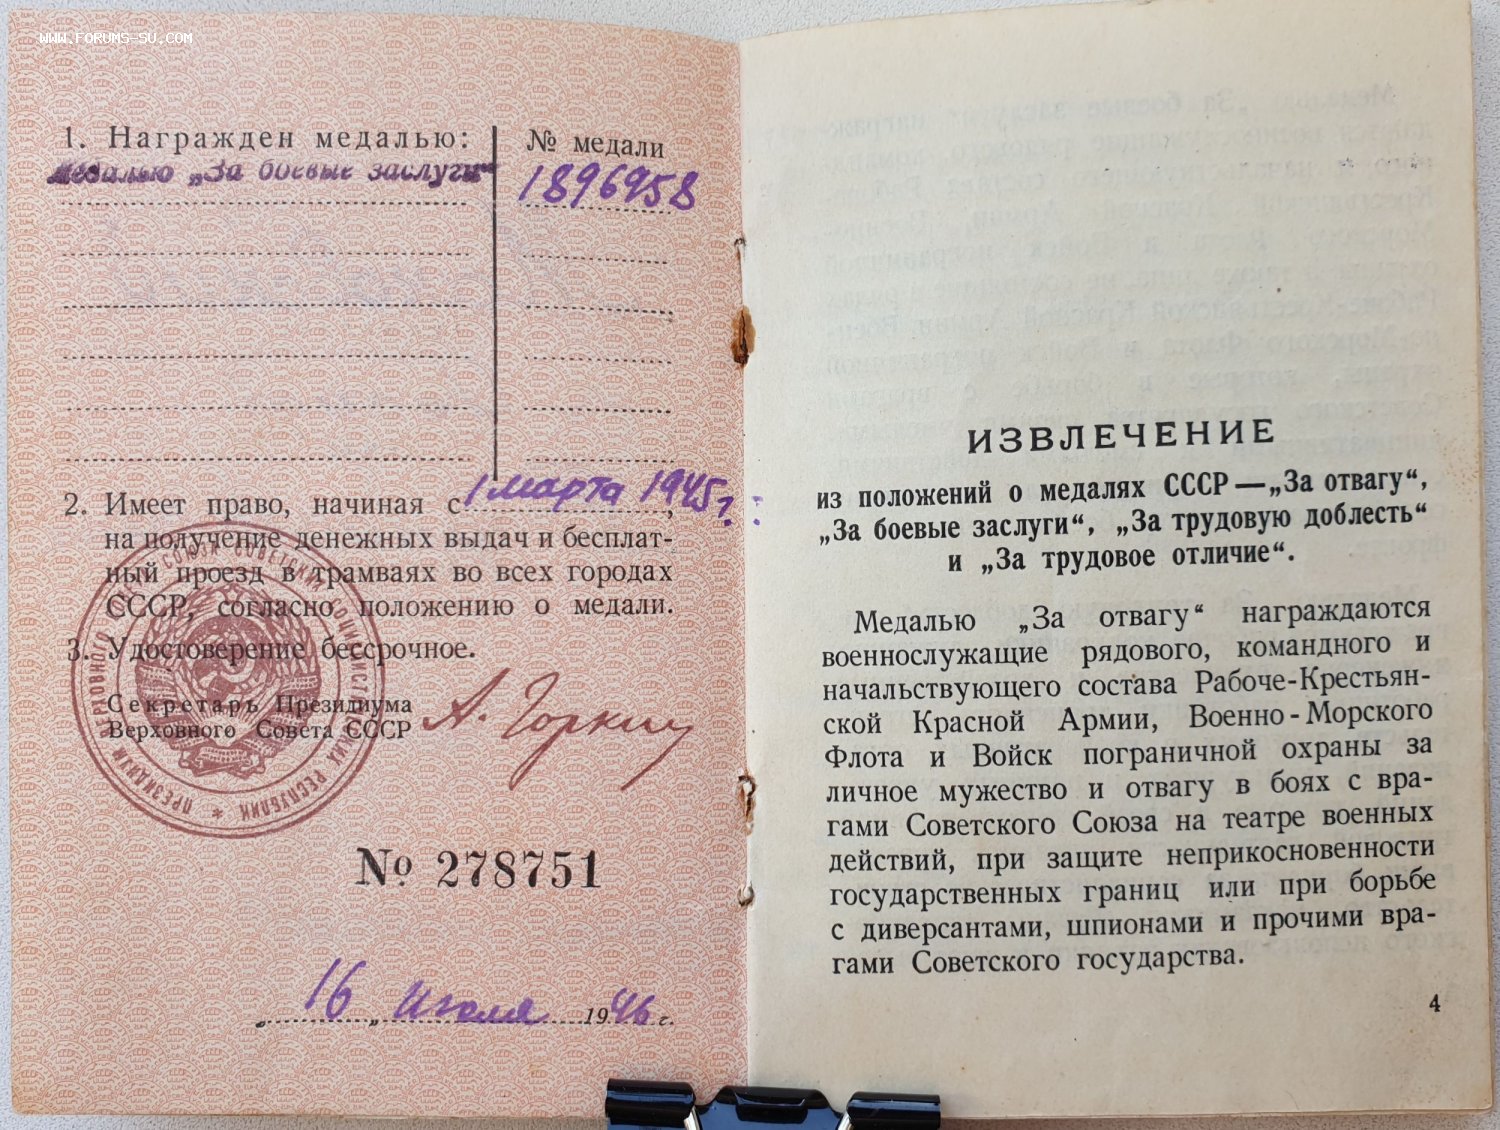 WWW.FORUMS-SU.COM
1. Награжден медалью:
№ медали
медалью „За боевые заслуги“
1896958
2. Имеет право, начиная с 1 марта 1945 г.,
на получение денежных выдач и бесплат-
ный проезд в трамваях во всех городах
СССР, согласно положению о медали.
3. Удостоверение бессрочное.
Секретарь Президиума
Верховного Совета СССР
А. Горкин
ПРЕЗИДИУМ ВЕРХОВНОГО СОВЕТА СОЮЗА СОВЕТСКИХ СОЦИАЛИСТИЧЕСКИХ РЕСПУБЛИК *
№ 278751
„16„ Июля 1946 г.
ИЗВЛЕЧЕНИЕ
из положений о медалях СССР—„За отвагу“,
„За боевые заслуги“, „За трудовую доблесть“
и „За трудовое отличие“.
Медалью „За отвагу“ награждаются
военнослужащие рядового, командного и
начальствующего состава Рабоче-Крестьян-
ской Красной Армии, Военно-Морского
Флота и Войск пограничной охраны за
личное мужество и отвагу в боях с вра-
гами Советского Союза на театре военных
действий, при защите неприкосновенности
государственных границ или при борьбе
с диверсантами, шпионами и прочими вра-
гами Советского государства.
4